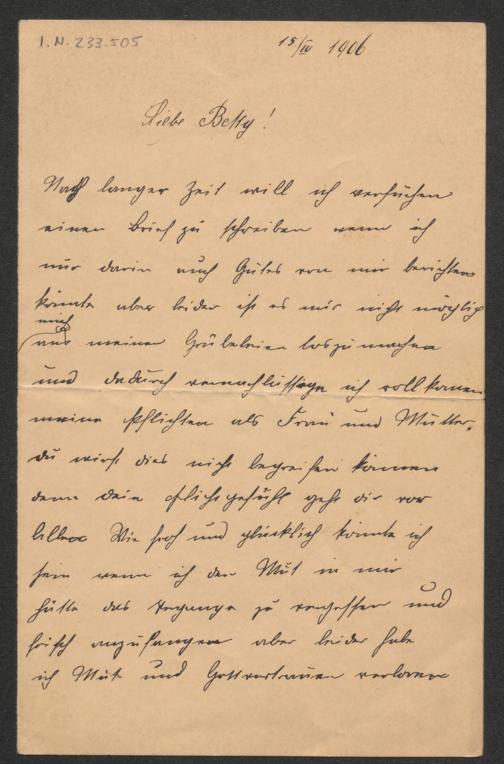 I.N. 233.505
15/IV 1906
Liebe Betty!
Nach langer Zeit will ich versuchen
einen Brief zu schreiben wenn ich
nur darin auch Gutes von mir berichten
könnte aber leider ist es mir nicht möglich
mich
aus meinen Grübeleien loszumachen
und dadurch vernachlässige ich vollkomen
meine Pflichten als Frau und Mutter.
du wirst dies nicht begreifen können
denn dein Pflichtgefühl geht dir vor
Allem Wie froh und glücklich könnte ich
sein wenn ich den Mut in mir
hätte das Vergange zu vergessen und
frisch anzufangen aber leider habe
ich Mut und Gottvertrauen verloren